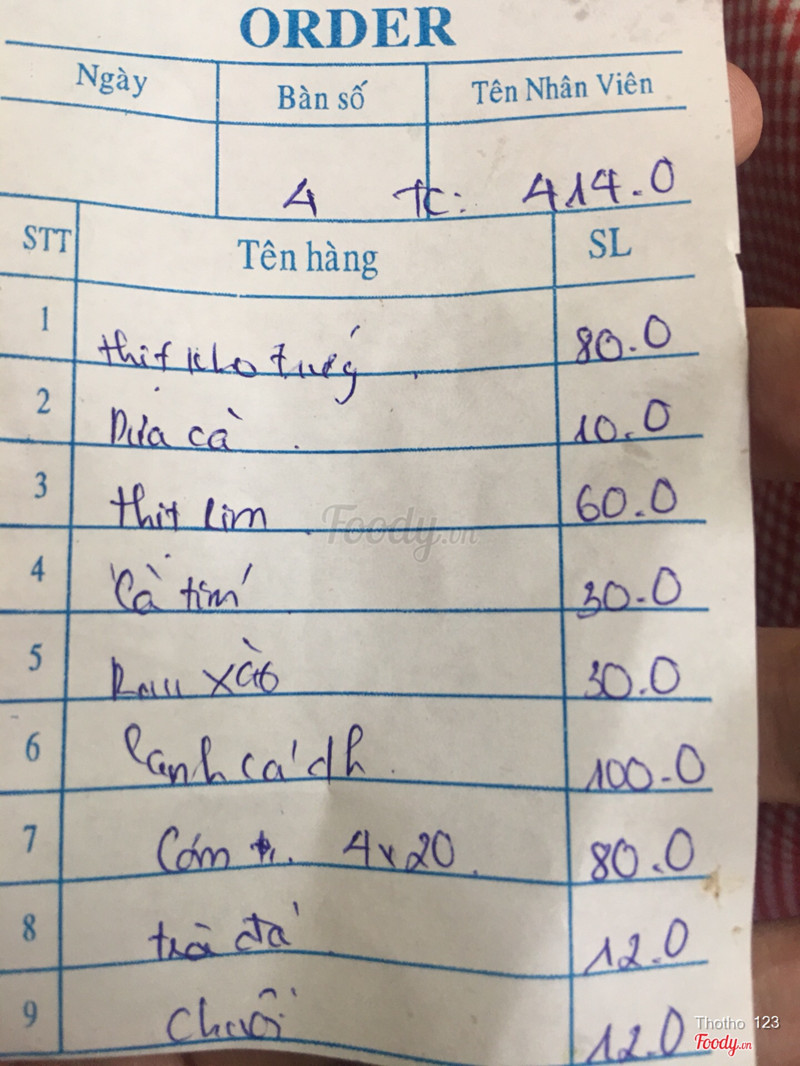 ORDER
Ngày Bàn số Tên Nhân Viên
4 TC: 414.0
STT Tên hàng SL
1 thịt kho trứng 80.0
2 Dưa cà 10.0
3 thịt rim 60.0
4 Cà tím 30.0
5 Rau xào 30.0
6 Canh cá dh 100.0
7 Cơm tr. 4x20 80.0
8 trà đá 12.0
9 Chuối 12.0
Foody.vn
Thotho 123
Foody.vn